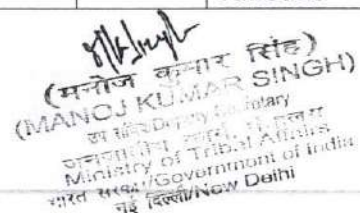 (मनोज कुमार सिंह)
(MANOJ KUMAR SINGH)
Deputy Secretary
Ministry of Tribal Affairs
भारत सरकार/Government of India
नई दिल्ली/New Delhi